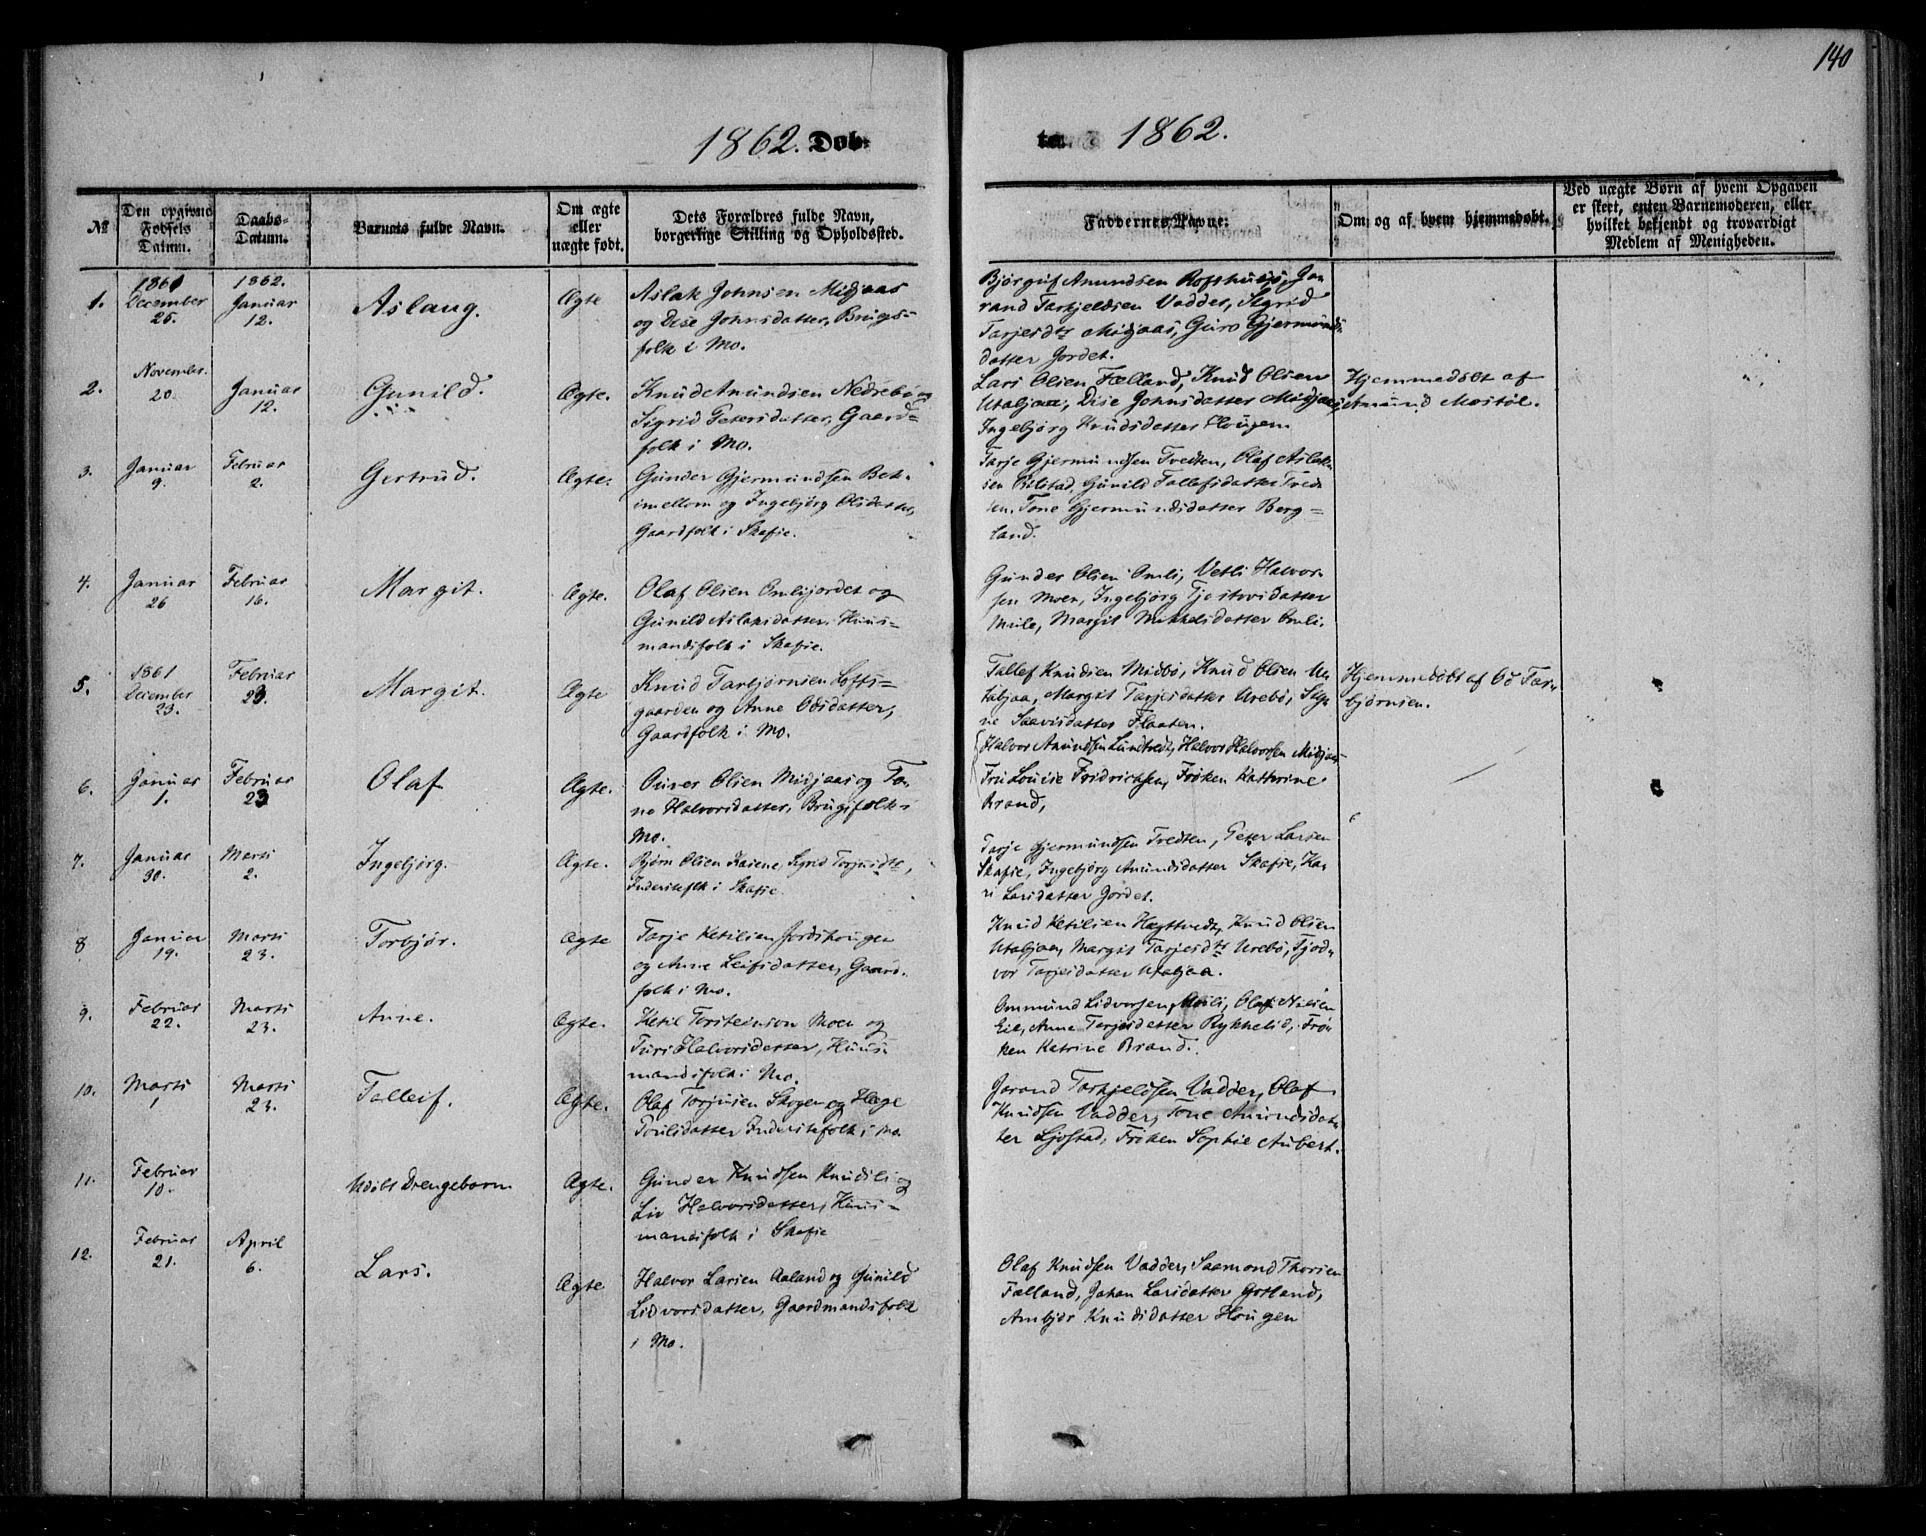 140
1862. Døb-
te. 1862.
№
Den opgivne
Fødsels
Datum.
Daabs-
Datum.
Barnets fulde Navn.
Om ægte
eller
uægte født.
Dets Forældres fulde Navn,
borgerlige Stilling og Opholdssted.
Faddernes Navne.
Om og af hvem hjemmedøbt.
Ved uægte Børn af hvem Opgaven
er skeet, enten Barnemoderen, eller
hvilket bekjendt og troværdigt
Medlem af Menigheden.
1.
1861
December
25.
1862.
Januar
12.
Aslaug.
Ægte
Aslak Johnsen Midjaas
og Dise Johnsdatter, Brugs-
folk i Mo.
Bjørguf Amundsen Rofshuus, Jo-
rand Tarkjeldsen Vadder, Sigrid
Tarjesdtr Midjaas, Guro Gjermunds-
datter Jordet.
2.
November
20.
Januar
12.
Gunild.
Ægte.
Knud Amundsen Nedrebø og
Sigrid Petersdatter, Gaard-
folk i Mo.
Lars Olsen Fælland, Knud Olsen
Utabjaa, Dise Johnsdatter Midjaas,
Ingebjørg Knudsdatter Hougen.
Hjemmedøbt af
Amund Mostøl.
3.
Januar
9.
Februar
2.
Gertrud.
Ægte.
Gunder Gjermundsen Bek-
imellom og Ingebjørg Olsdatter,
Gaardfolk i Skafse.
Tarje Gjermundsen Tvedten, Olaf Aslak-
sen Bilstad, Gunild Tallefsdatter Tved-
ten, Tone Gjermundsdatter Berg-
land.
4.
Januar
26
Februar
16.
Margit.
Ægte.
Olaf Olsen Omlijordet og
Gunild Aslaksdatter, Huus-
mandsfolk i Skafse.
Gunder Olsen Omli, Vetli Halvor-
sen Moen, Ingebjørg Tjostovsdatter
Mule, Margit Mikkelsdatter Omli.
5.
1861
December
23.
Februar
23.
Margit.
Ægte
Knud Tarbjørnsen Lofts-
gaarden og Anne Odsdatter,
Gaardfolk i Mo.
Tallef Knudsen Midbø, Knud Olsen U-
tabjaa, Margit Tarjesdatter Urebø, Sig-
ne Saavesdatter Flaaten.
Hjemmedøbt af Od Tar-
bjørnsen.
6.
Januar
1.
Februar
23
Olaf
Ægte.
Ouver Olsen Midjaas og To-
ne Halvorsdatter, Brugsfolk i
Mo.
Halvor Amundsen Lundtvedt, Halvor Halvorsen Midjaas
Fru Louise Fridrichsen, Frøken Kathrine
Brand,
7.
Januar
30.
Marts
2.
Ingebjørg.
Ægte.
Bjørn Olsen, Sigrid Torjusdtr,
Inderstefolk i Skafse.
Tarje Gjermundsen Tvedten, Peter Larsen
Skafse, Ingebjørg Amundsdatter Skafse, Ka-
ri Larsdatter Jordet.
8
Januar
19.
Marts
23.
Torbjør.
Ægte
Tarje Ketilsen Jordshougen
og Anne Leifsdatter, Gaard-
folk i Mo.
Knud Ketilsen Høgtvedt, Knud Olsen
Utabjaa, Margit Tarjesdtr Urebø, Tjod-
vor Tarjesdatter Utabjaa.
9.
Februar
22.
Marts
23.
Anne.
Ægte.
Ketil Torsteinson Moen og
Turi Halvorsdatter, Huus-
mandsfolk i Mo.
Ommund Lidvorsen Moli, Olaf Nilsen
Eie, Anne Tarjesdatter Rykkelid, Frø-
ken Katrine Brand.
10.
Marts
1
Marts
23.
Talleif.
Ægte.
Olaf Torjusen Skogen og Hæge
Poulsdatter Inderstefolk i Mo.
Jorand Torkjeldsen Vadder, Olaf
Knudsen Vadder, Tone Amundsdat-
ter Ljosstad, Frøken Sophie Aubert.
11.
Februar
10.
Udøbt Drengebarn
Ægte.
Gunder Knudsen Knudsli og
Liv Halvorsdatter, Huus-
mandsfolk i Skafse
12.
Februar
21.
April
6.
Lars.
Ægte
Halvor Larsen Aaland og Gunild
Lidvorsdatter, Gaardmandsfolk
i Mo.
Olaf Knudsen Vadder, Saamond Thorsen
Fælland, Johan Larsdatter Gotland,
Ambjør Knudsdatter Hougen